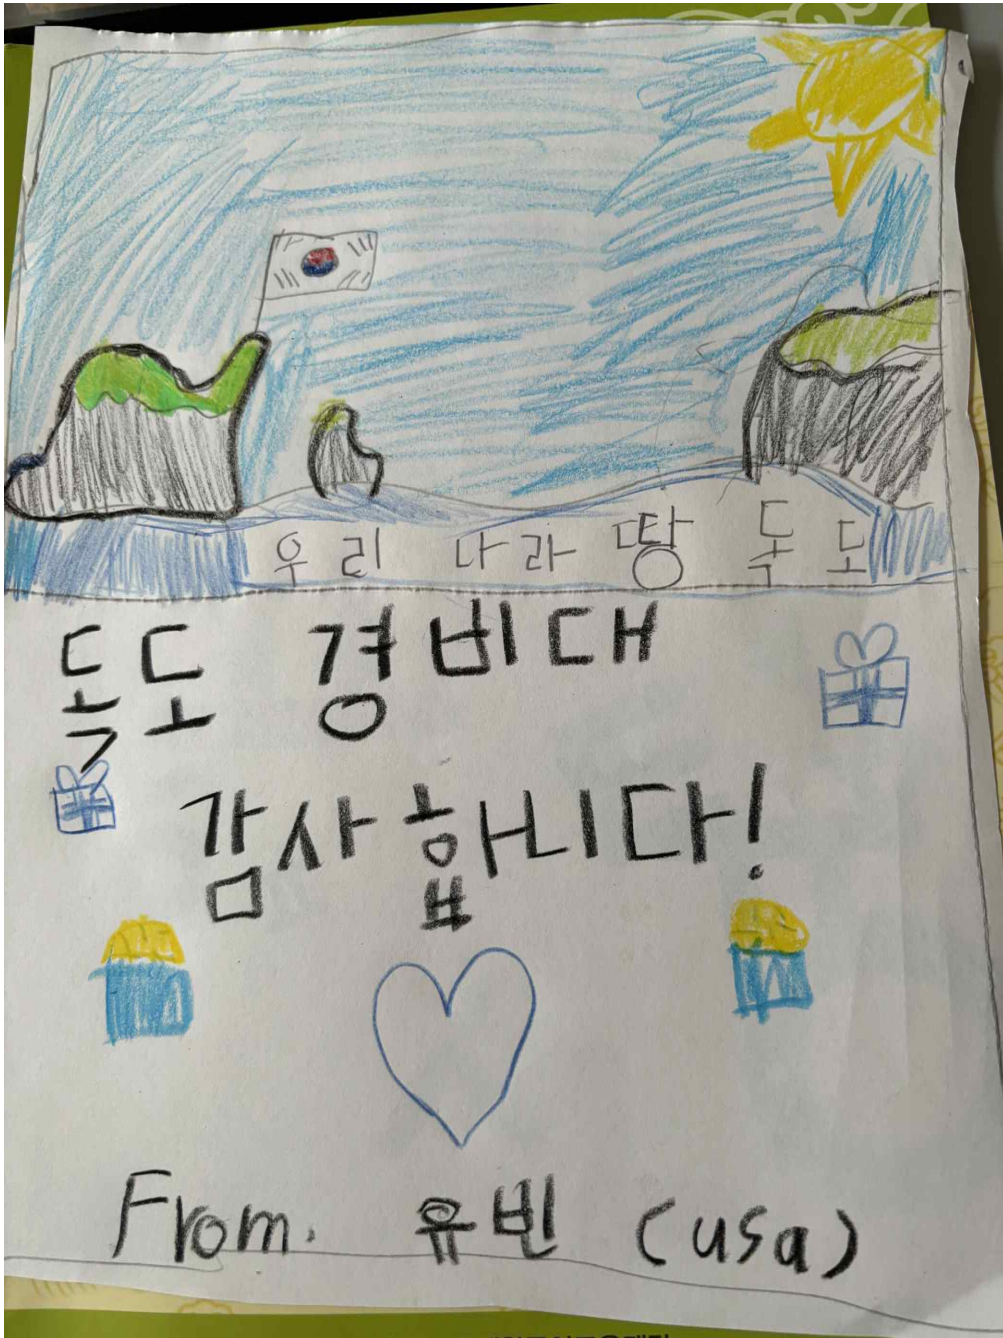 우리 나라 땅 독도
독도 경비대
감사합니다!
From. 유빈 (usa)